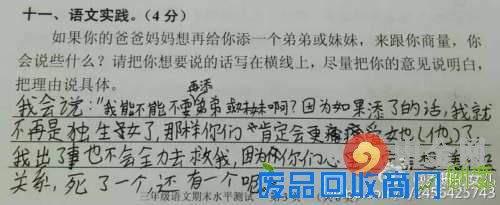 十一、语文实践。(4分)
如果你的爸爸妈妈想再给你添一个弟弟或妹妹,来跟你商量,你
会说些什么?请把你想要说的话写在横线上,尽量把你的意见说明白,
把理由说具体。
再添
我会说:“我能不能不要弟弟或妹妹啊?因为如果添了的话,我就
不再是独生女了,那样你们肯定会更疼爱她(他)了
我出了事也不会全力去救我,因为你们心
关系,死了一个,还有一个呢
三年级语文期末水平测试
废品回收商网